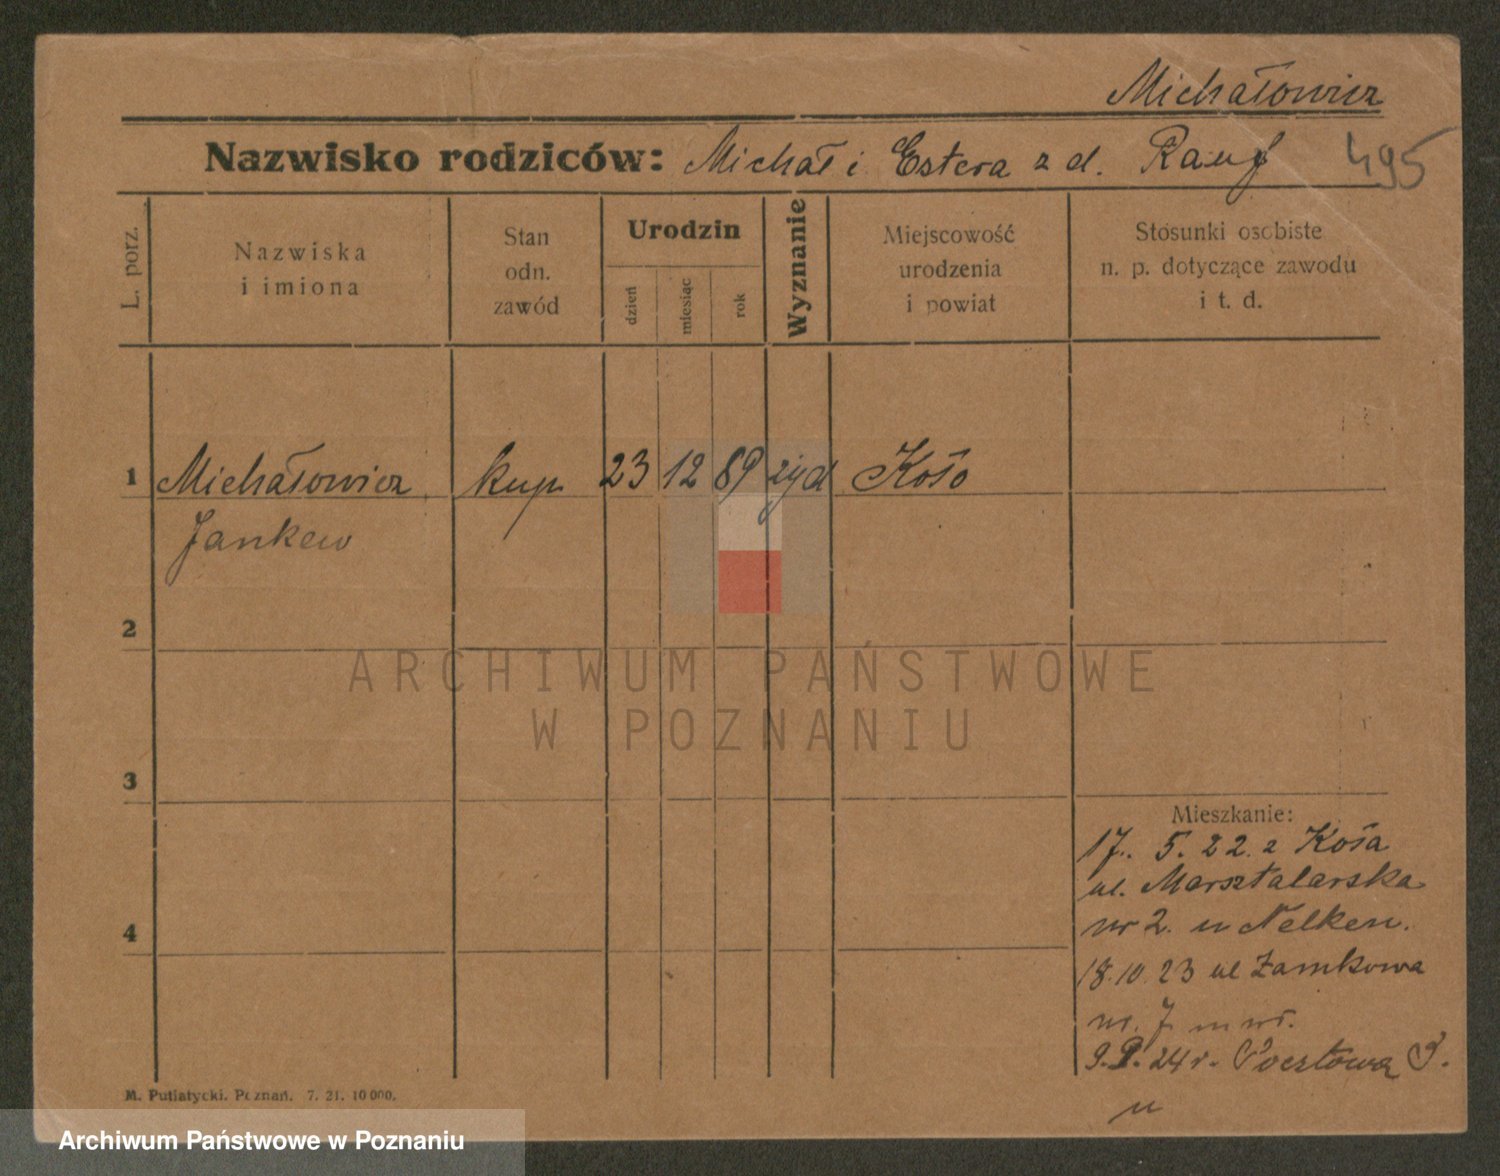 Michałowicz
Nazwisko rodziców: Michał i Estera z d. Rauf
495
L. porz.
Nazwiska
i imiona
Stan
odn.
zawód
Urodzin
dzień
miesiąc
rok
Wyznanie
Miejscowość
urodzenia
i powiat
Stosunki osobiste
n. p. dotyczące zawodu
i t. d.
1 Michałowicz kup. 23 12 89 żyd Koło
Jankew
2
ARCHIWUM PAŃSTWOWE
W POZNANIU
3
Mieszkanie:
17. 5. 22. z Koła
ul. Marsztalarska
nr 2. u Nelken.
4
18.10.23 ul Zamkowa
nr. 7 m wł.
9. 24 r. Pocztowa
M. Putiatycki. Poznań. 7. 21. 10 000.
Archiwum Państwowe w Poznaniu